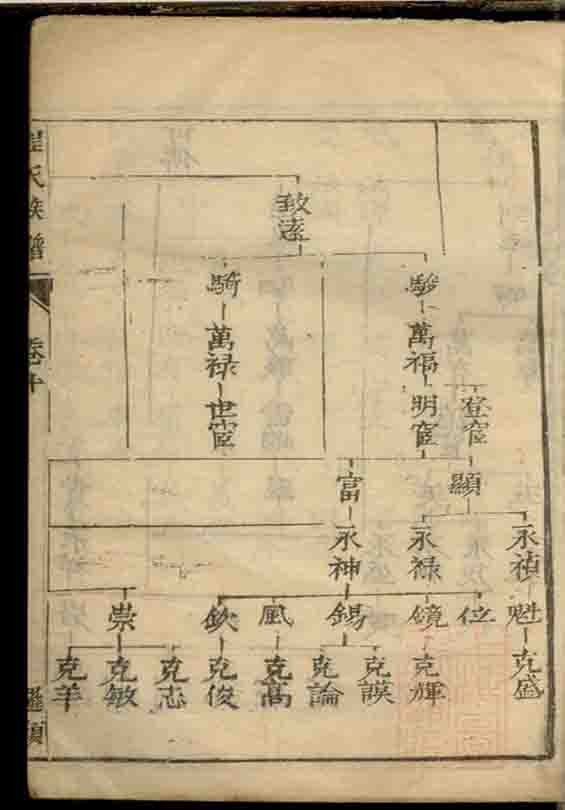 致遠
騎
萬福
登宦
明宦
騎
萬禄
世宦
顯
富
永禎
永禄
永神
魁
位
鏡
錫
風
欽
崇
克盛
克輝
克謨
克論
克高
克俊
克志
克敏
克羊
氏族譜
卷十